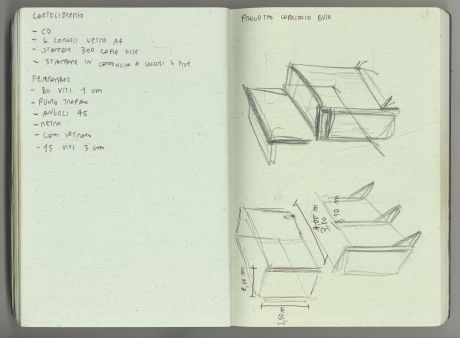 CARTOLIBRERIA
- CD
- 6 CORNICI VETRO A4
- STAMPARE 300 COPIE FILE
- STAMPARE IN A COLORI 6 FILE
FERRAMENTA
- 80 VITI 1 cm
- PUNTO TRAPANO
- ANGOLI 45
- METRO
- VETRATA
- 15 VITI 3 cm
PROGETTO CORRIDOIO BUIO
4,00 m
3,00
2,50 m
2,00 m
2,50 m